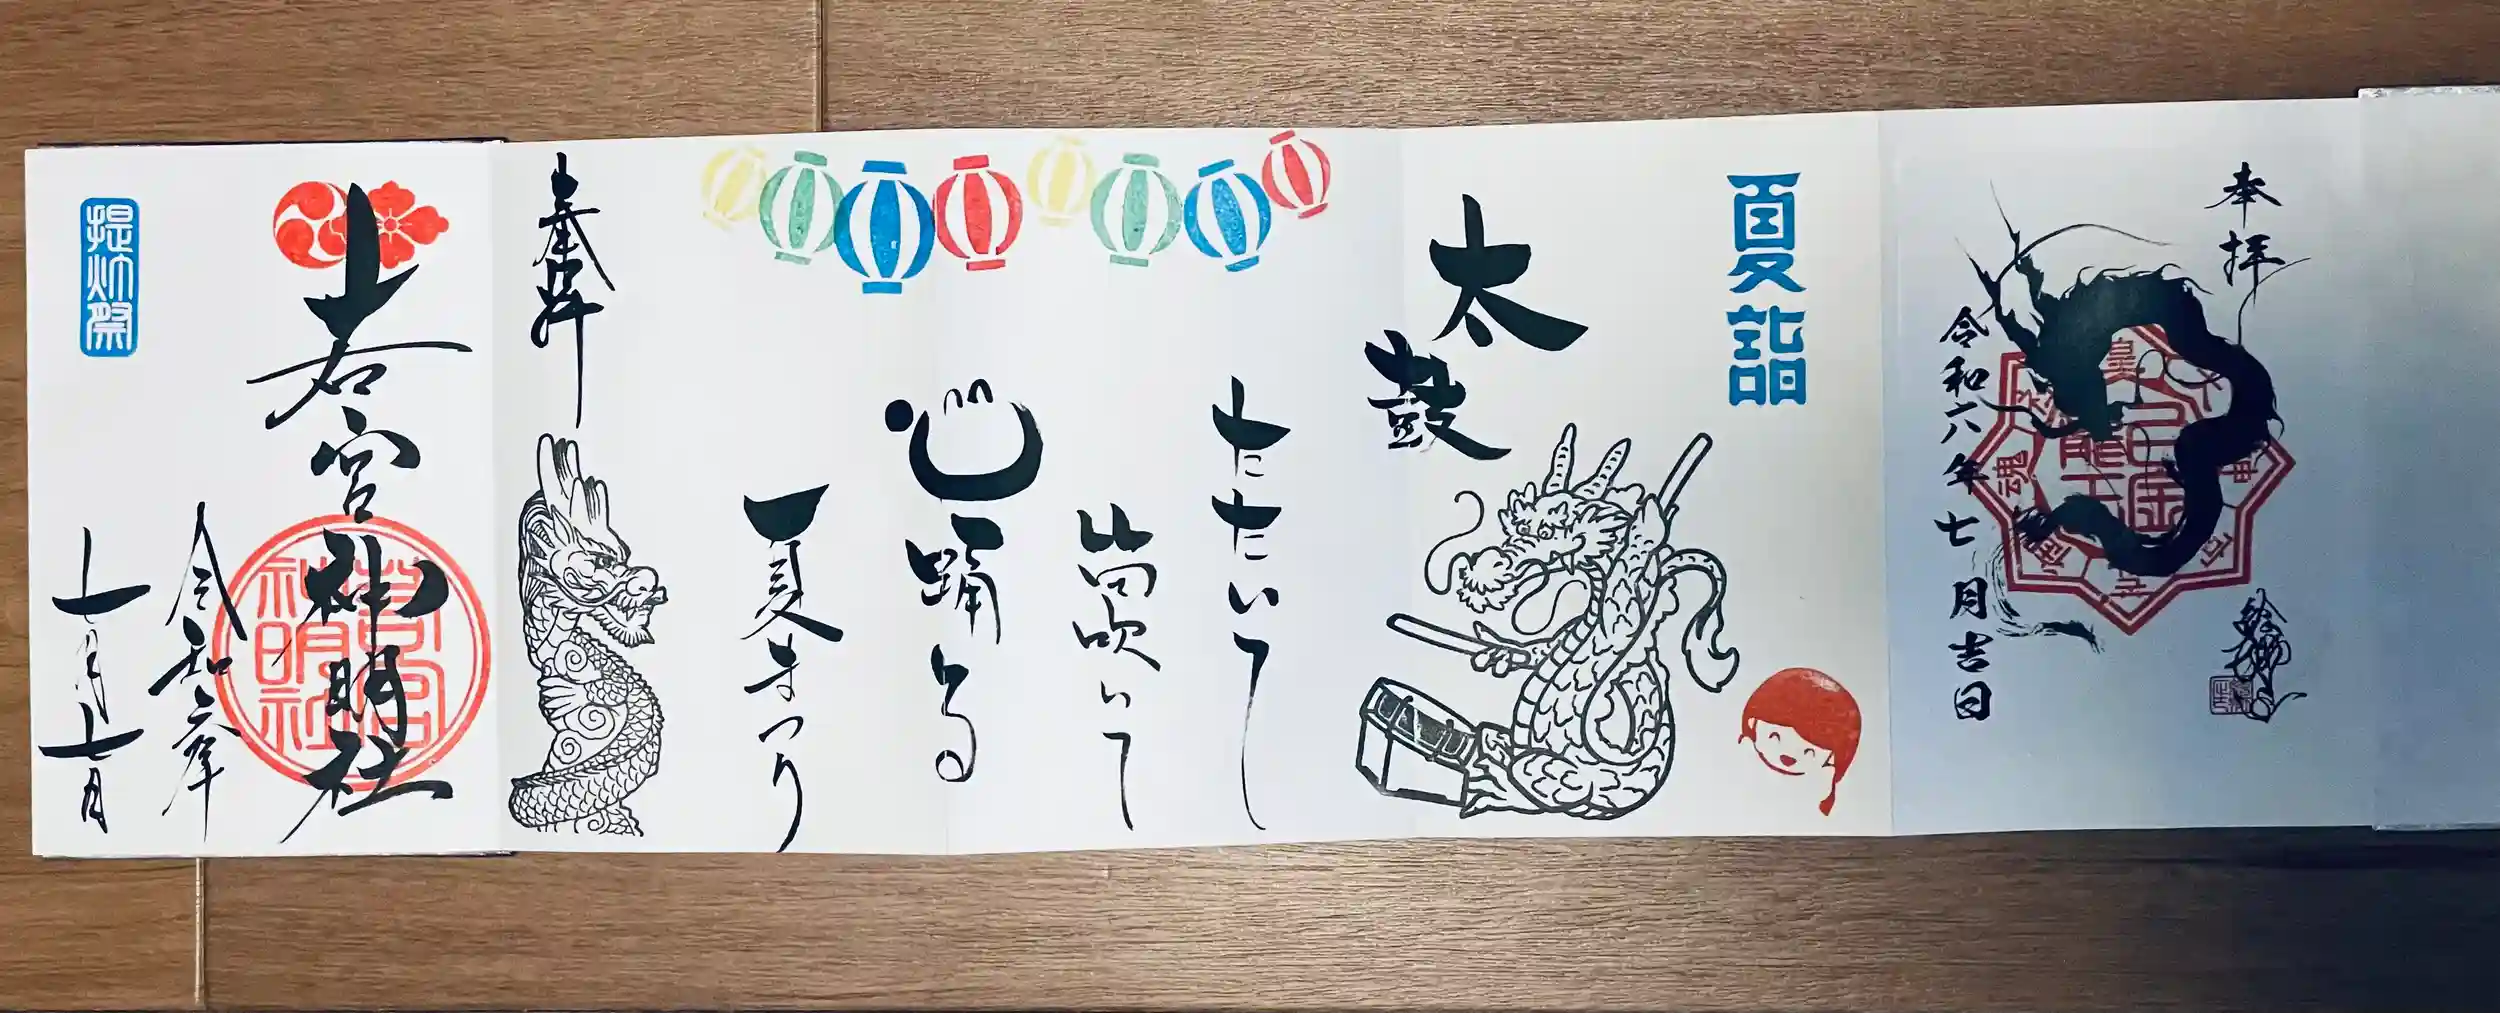 奉拝
令和六年七月吉日
夏詣
太鼓
たたいて
笛吹いて
心踊る
夏まつり
奉拝
若宮神明社
若宮神明社
令和六年
七月七日
提灯祭